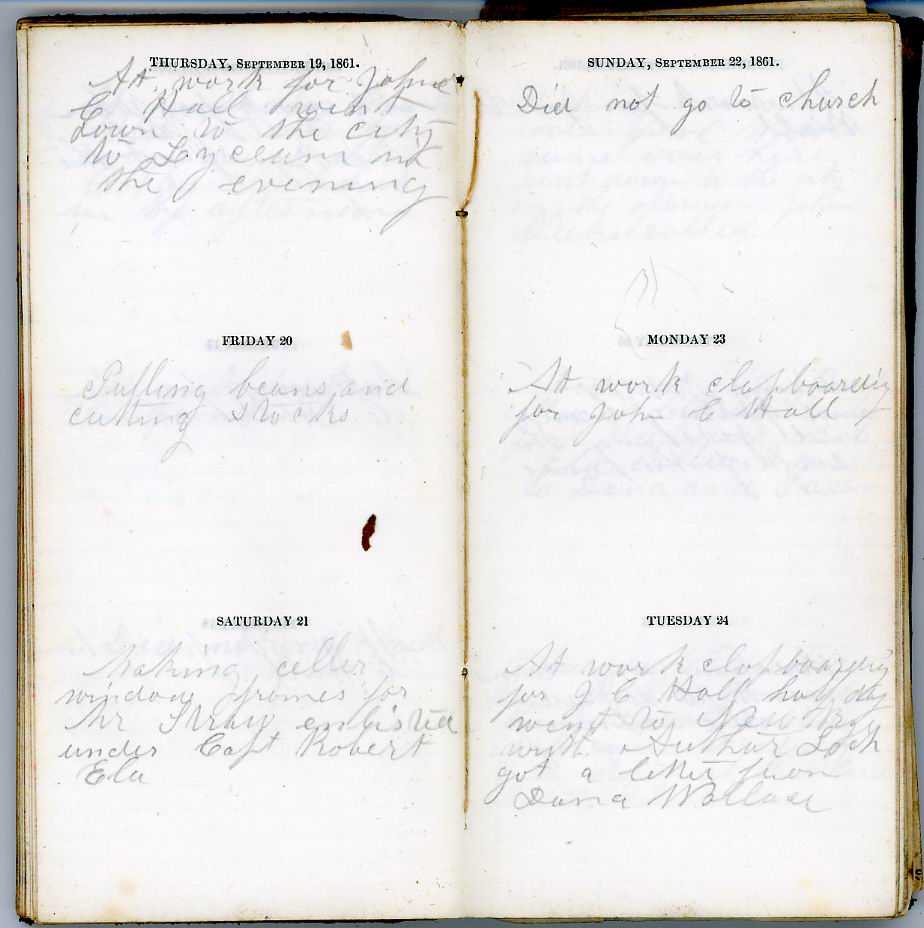 THURSDAY, SEPTEMBER 19, 1861.
At work for John
C Hall went
Down to the city
to Lyceum in
the evening
FRIDAY 20
Pulling beans and
cutting stocks
SATURDAY 21
Making celler
window frames for
Mr Straw enlisted
under Capt Robert
Ela
SUNDAY, SEPTEMBER 22, 1861.
Did not go to church
MONDAY 23
At work clapboarding
for John C Hall
TUESDAY 24
At work clapboarding
for J C Hall half day
went to New
with Arthur
got a letter from
Dana Wallace